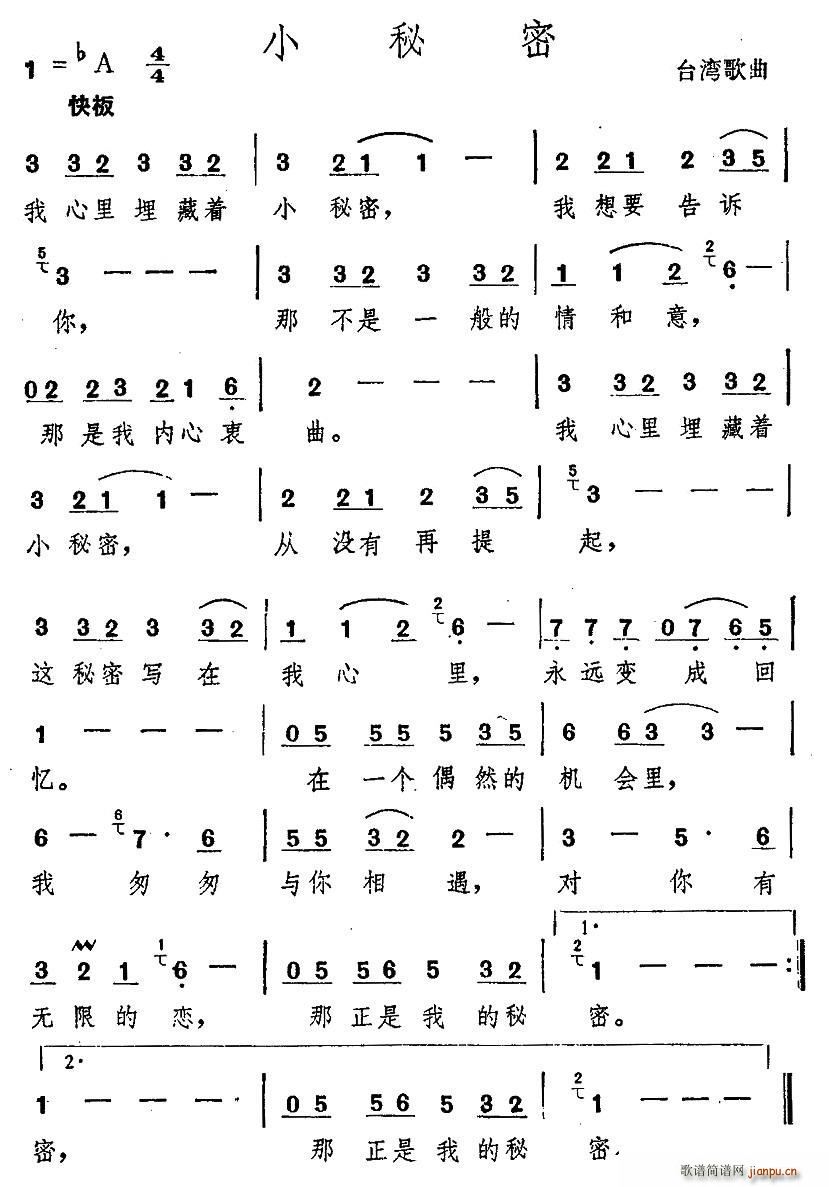 小秘密
1=♭A 4/4
台湾歌曲
快板
3 32 3 32 | 3 21 1 — | 2 21 2 35 |
我心里埋藏着 小秘密, 我想要告诉
5 3 — — — | 3 32 3 32 | 1 1 2 2 6 — |
你, 那不是一般的 情和意,
02 23 21 6 | 2 — — — | 3 32 3 32 |
那是我内心衷 曲。 我心里埋藏着
3 21 1 — | 2 21 2 35 | 5 3 — — — |
小秘密, 从没有再提 起,
3 32 3 32 | 1 1 2 2 6 — | 7 7 7 07 6 5 |
这秘密写在 我心里, 永远变成回
1 — — — | 05 55 5 35 | 6 63 3 — |
忆。 在一个偶然的 机会里,
6 — 6 7· 6 | 55 32 2 — | 3 — 5· 6 |
我匆匆 与你相遇, 对你有
1·
3 2 1 1 6 — | 05 56 5 32 | 2 1 — — — :|
无限的恋, 那正是我的秘 密。
2·
1 — — — | 05 56 5 32 | 2 1 — — — ||
密, 那正是我的秘 密.
歌谱简谱网 jianpu.cn